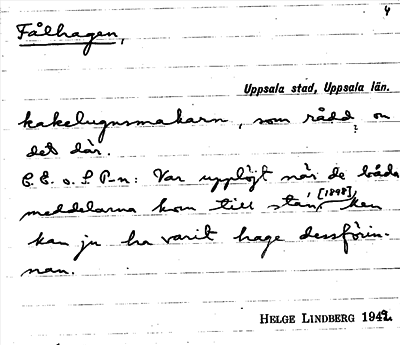 4
Fålhagen,
Uppsala stad, Uppsala län.
kakelugnsmakarn, som rådd, om
det där.
C. E. o. S. P-n: Var upplöjt när de båda
meddelarna kom till stan [1898], men
kan ju ha varit hage dessförin-
nan.
HELGE LINDBERG 1942.